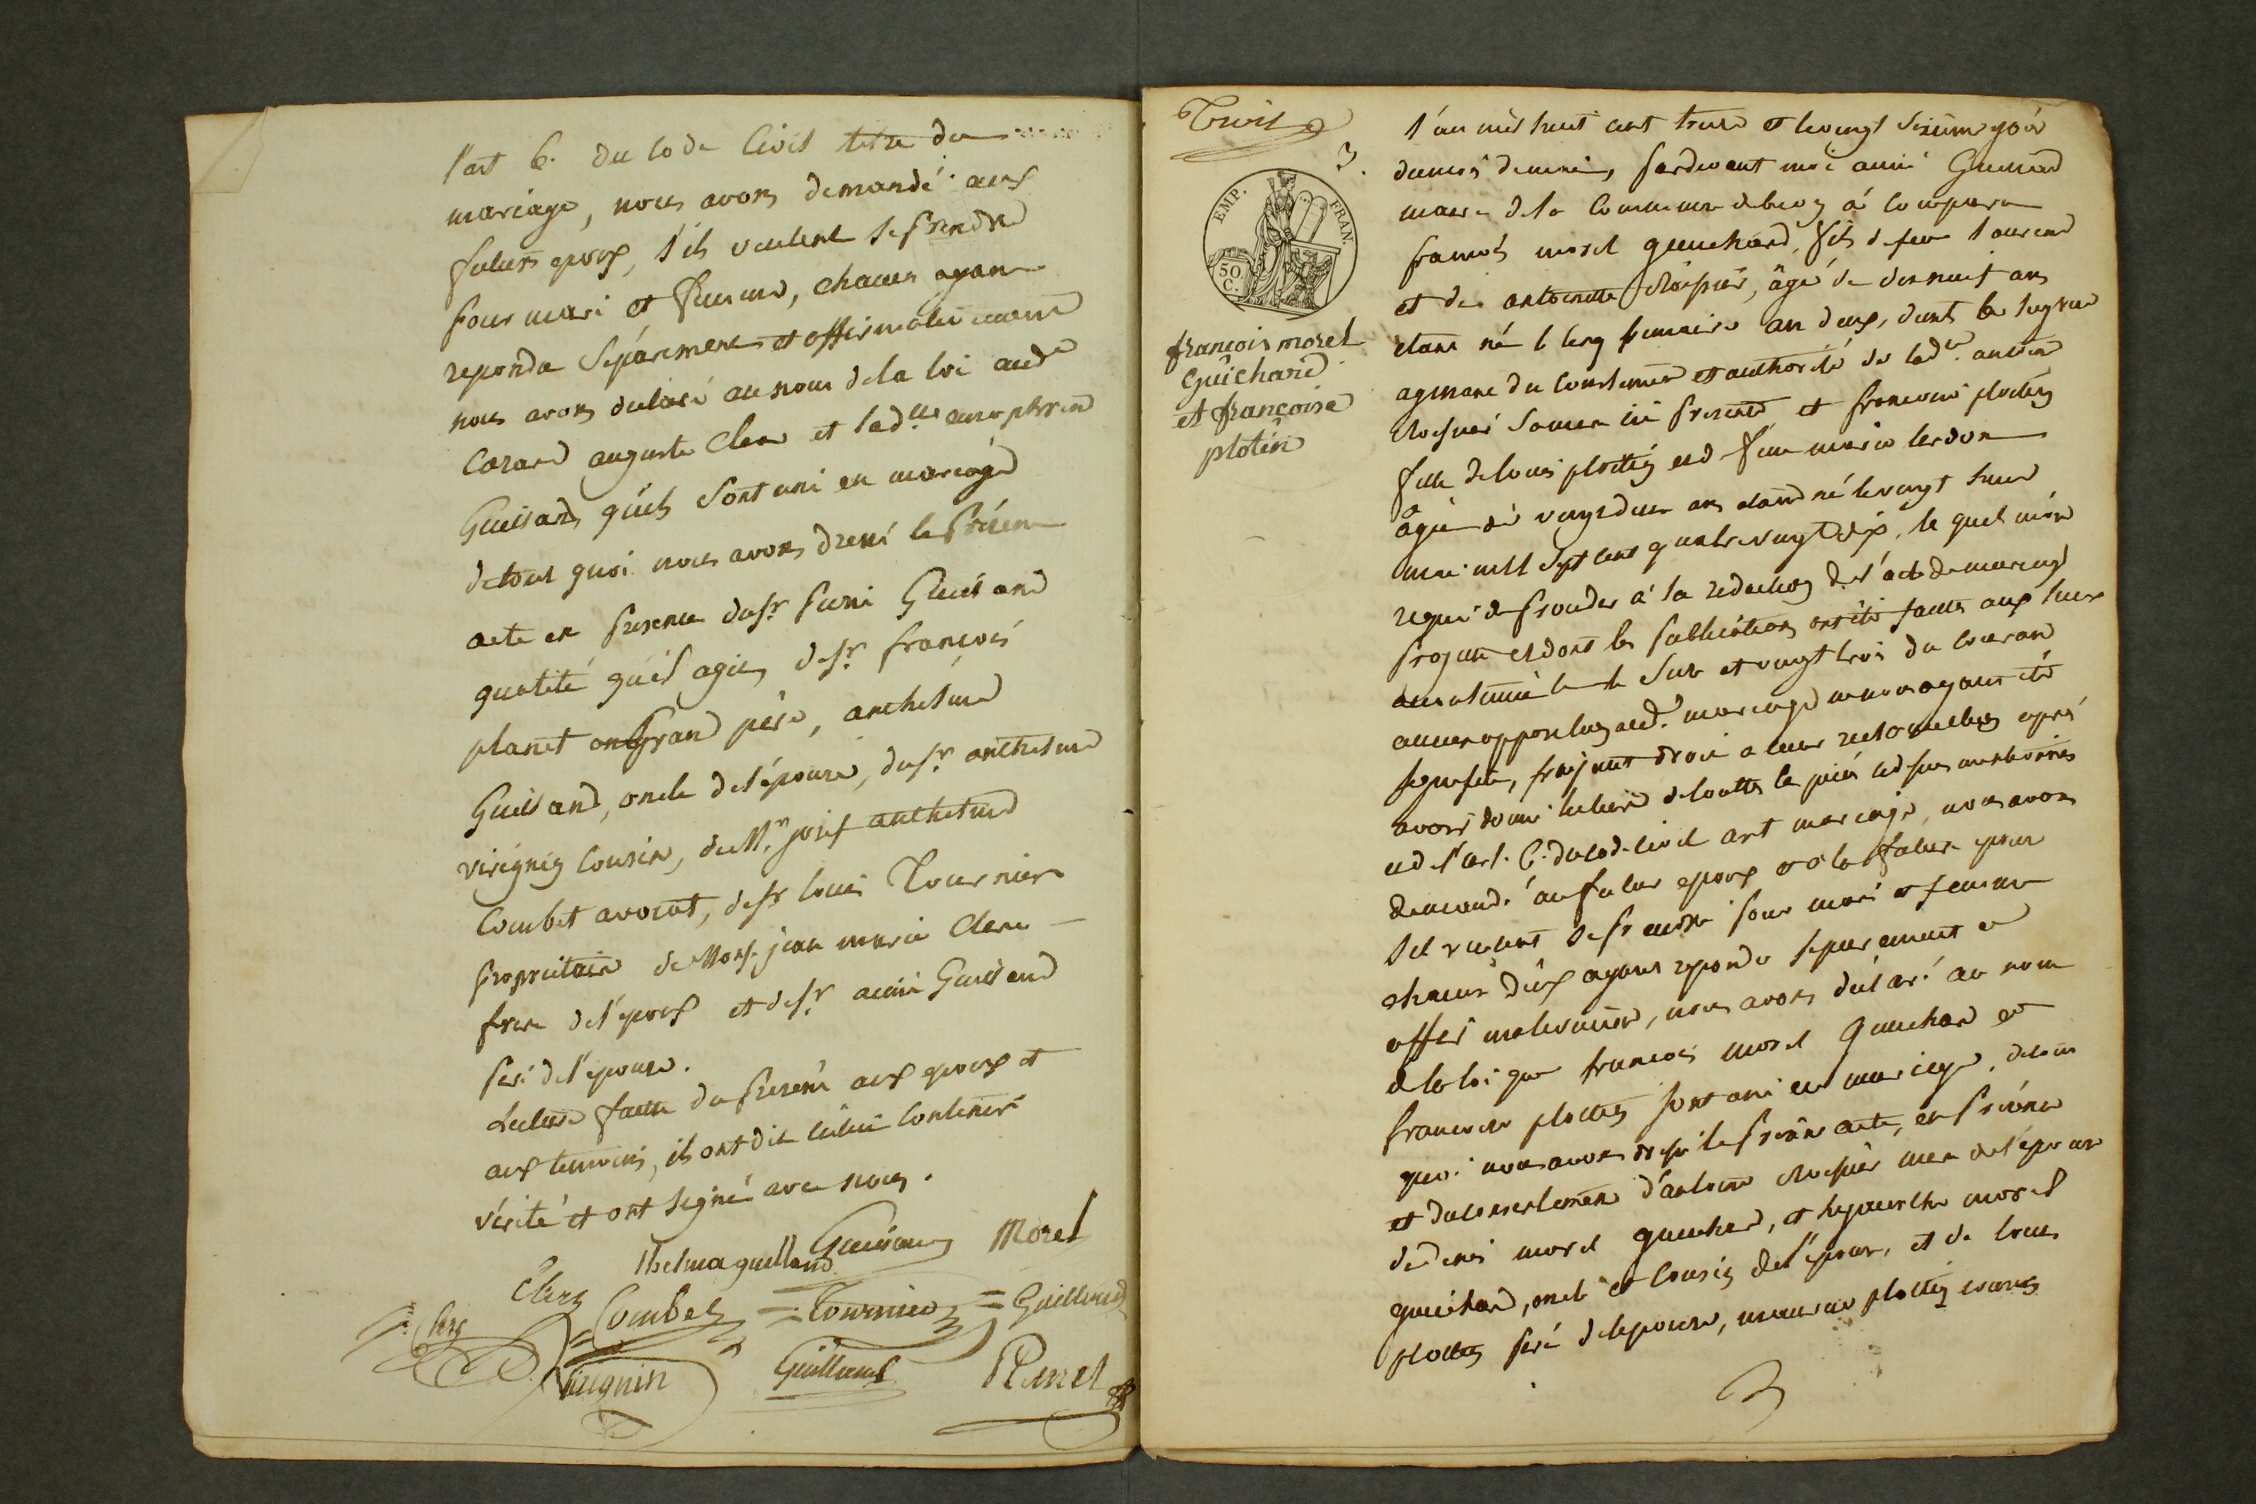 l'art 6. du Code Civil titre du
mariage, nous avons demandé aux
futurs epoux, s'ils veulent se prendre
pour mari et femme, chacun ayant
repondu séparement et affirmativement
nous avons déclaré au nom de la loi aud.
Cazard auguste Clerc et lad.lle
Guilland quils sont uni en mariage
de tout quoi nous avons dressé le présent
acte en presence du sr Guilland
qualité qu'il agit, du sr. françois
planet grand père, anthelme
Guilland, oncle de l'épouse, du sr. anthelme
virignin cousin, de Mr. josef anthelme
Combet avocat, du sr louis Tournier
propriétaire de Monsr. jean marie Clerc
frere de l'epoux et du sr. aimé Guilland
pere de l'epouse.
Lecture faitte du présent aux epoux et
aux temoins, ils ont dit icelui contenir
vérité et ont signé avec nous.
Thelma guilland Morel
Clerc Combet = Tournier = Guilland
Clerc
Virignin Guilland Planet
Trois
3.
EMP. FRAN.
50 C.
françois morel
Guichard
et françoise
plotin
l'an mil huit cent treize et le vingt sixieme jour
du mois de mai, pardevant moi aimé Guilland
maire de la Commune de a comparu
françois morel guichard, fils de feu Laurend
et de antoinette, âgé de dix neuf ans
etant né le cinq frimaire an deux, dont le
agissant du consentement et authorité de lad.e
sa mere ici presente et françoise plottin
fille de louis plottin et de marie
agée de vingt deux ans etant né le vingt
mai mil sept cent quatre vingt dix, le quel m'on
requi de proceder à la redaction de l'acte de mariage
projetté et dont les publications ont été faites aux lieux
accoutumé le seize et vingt trois du courant
aucune opposition aud. mariage ne nous ayant été
signifiée, faisant droit a leur requisition après
avoir donné lecture de toutes les pieces ci dessus mentionnées
et de l'art. 6. du code civil art mariage, nous avons
demandé au futur epoux et à la future epouse
s'il veulent se prendre pour mari et femme
chacun d'eux ayant repondu separement et
affirmativement, nous avons déclaré au nom
de la loi que françois morel guichard et
françoise plottin sont uni en mariage, de tout
quoi nous avons dressé le présent acte, en présence
et du consentement d'antoinette mere de l'epoux
de denis morel guichard, et morel
guichard, oncle et cousin de l'epoux, et de louis
plottin peré de l'epouse, plottin
3